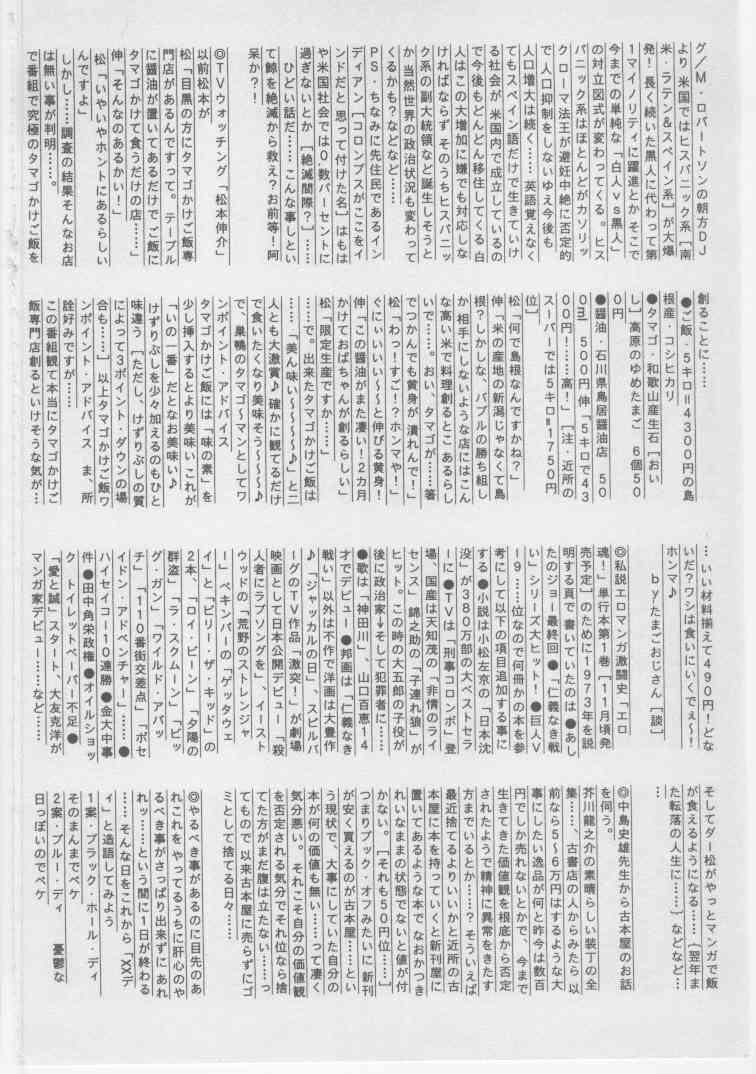 グ/M・ロバートソンの朝方DJ
より 米国ではヒスパニック系[南
米・ラテン&スペイン系]が大爆
発!長く続いた黒人に代わって第
1マイノリティに躍進とか そこで
今までの単純な「白人vs黒人」
の対立図式が変わってくる。ヒス
パニック系はほとんどがカソリッ
クローマ法王が避妊中絶に否定的
で人口抑制をしないゆえ今後も
人口増大は続く……英語覚えなく
てもスペイン語だけで生きていけ
る社会が 米国内で成立しているの
で今後もどんどん移住してくる 白
人はこの大増加に嫌でも対応しな
ければならず そのうちヒスパニッ
ク系の副大統領など誕生しそうと
か 当然世界の政治状況も変わって
くるかも?などなど……
PS・ちなみに先住民であるイン
ディアン[コロンブスがここをイ
ンドだと 思って付けた名]はもは
や米国社会では0.数パーセントに
過ぎないとか[絶滅間際?]……
ひどい話だ……こんな事しとい
て鯨を絶滅から救え?お前等!阿
呆か?!
◎TVウォッチング「松本伸介」
以前松本が
松「目黒の方にタマゴかけご飯専
門店があるんですって。テーブル
に醤油が置いてあるだけで ご飯に
タマゴかけて食うだけの店……」
伸「そんなのあるかい!」
松「いやいやホントにあるらしい
んですよ」
しかし……調査の結果そんなお店
は無い事が判明……。
で番組で究極のタマゴかけご飯を
創ることに……
●ご飯・5キロ=4300円の島
根産・コシヒカリ
●タマゴ・和歌山産生石[おい
し]高原のゆめたまご 6個50
0円
●醤油・石川県鳥居醤油店 50
0ml 500円 伸「5キロで43
00円!……高!」[注・近所の
スーパーでは5キロ=1750円
位]
松「何で島根なんですかね?」
伸「米の産地の新潟じゃなくて島
根?しかしな、バブルの勝ち組し
か 相手にしないような店にはこん
な高い米で料理創るとこ あるらし
いで……。おい、タマゴが……箸
でつかんでも黄身が潰れんで!」
松「わっ!すご!?ホンマや!」
ぐにぃいいい〜〜と伸びる黄身!
伸「この醤油がまた凄い!2カ月
かけておばちゃんが創るらしい」
松「限定生産ですか……」
……で。出来たタマゴかけご飯は
……「美ん味い〜〜〜〜♪」と二
人とも大激賞♪ 確かに観てるだけ
で食いたくなり美味そう〜〜〜♪
で、巣鴨のタマゴ〜マンとしてワ
ンポイント・アドバイス
タマゴかけご飯には「味の素」を
少し挿入するとより美味い これが
「いの一番」だとなお美味い♪
けずりぶしを少々加えるのもひと
味違う[ただし、けずりぶしの質
によって3ポイント・ダウンの場
合も……]以上タマゴかけご飯ワ
ンポイント・アドバイス ま、所
詮好みですが……
この番組観て本当にタマゴかけご
飯専門店創るといけそうな気が…
…いい材料揃えて490円!どな
いだ?ワシは食いにいくでぇ〜!
ホンマ♪
by/たまごおじさん[談]
◎私説エロマンガ激闘史「エロ
魂!」単行本第1巻[11月頃発
売予定]のために1973年を説
明する頁で書いていたのは●あし
たのジョー最終回●「仁義なき戦
い」シリーズ大ヒット!●巨人V
ー9……位なので何冊かの本を参
考にして以下の項目追加する事に
する●小説は小松左京の「日本沈
没」が380万部の大ベストセラ
ーに●TVは「刑事コロンボ」登
場、国産は天知茂の「非情のライ
センス」錦之助の「子連れ狼」が
ヒット。この時の大五郎の子役が
後に政治家→そして犯罪者に……
●歌は「神田川」、山口百恵14
才でデビュー●邦画は「仁義なき
戦い」以外は不作で洋画は大豊作
♪「ジャッカルの日」、スピルバ
ーグのTV作品「激突!」が劇場
映画として日本公開デビュー「殺
人者にラブソングを」、イースト
ウッドの「荒野のストレンジャ
ー」ペキンパーの「ゲッタウェ
イ」と「ビリー・ザ・キッド」の
2本、「ロイ・ビーン」「夕陽の
群盗」「ラ・スクムーン」「ビッ
グ・ガン」「ワイルド・アパッ
チ」「110番街交差点」「ポセ
イドン・アドベンチャー」……●
ハイセイコー10連勝●金大中事
件●田中角栄政権●オイルショッ
ク・トイレットペーパー不足●
「愛と誠」スタート、大友克洋が
マンガ家デビュー……など……
そしてダー松がやっとマンガで飯
が食えるようになる……〔翌年ま
た転落の人生に……〕などなど…
…
◎中島史雄先生から古本屋のお話
を伺う。
芥川龍之介の素晴らしい装丁の全
集……古書店の人からみたら 以
前なら5〜6万円はするような大
事にしたい逸品が何と昨今は数百
円でしか売れないとかで、今まで
生きてきた価値観を根底から否定
されたようで精神に異常をきたす
方までいるとか……?そういえば
最近捨てるよりいいかと近所の古
本屋に本を持っていくと新刊屋に
置いてあるような本で なおかつき
れいなままの状態でないと値が付
かない。[それも50円位……]
つまりブック・オフみたいに 新刊
が安く買えるのが古本屋……とい
う現状で、大事にしていた自分の
本が何の価値も無い……って凄く
気分悪い。それこそ自分の価値観
を否定される気分でそれ位なら捨
てた方がまだ腹は立たない……っ
てもので 以来古本屋に売らずにゴ
ミとして捨てる日々……
◎やるべき事があるのに目先のあ
れこれを やってるうちに肝心のや
るべき事がさっぱり出来ずに あれ
れッ……という間に1日が終わる
……そんな日をこれから「XXデ
ィ」と造語してみよう
1案・ブラック・ホール・ディ
そのまんまでペケ
2案・ブルー・ディ 憂鬱な
日っぽいのでペケ